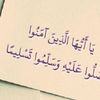 يَا أَيُّهَا الَّذِينَ آمَنُوا
صَلُّوا عَلَيْهِ وَسَلِّمُوا تَسْلِيمًا